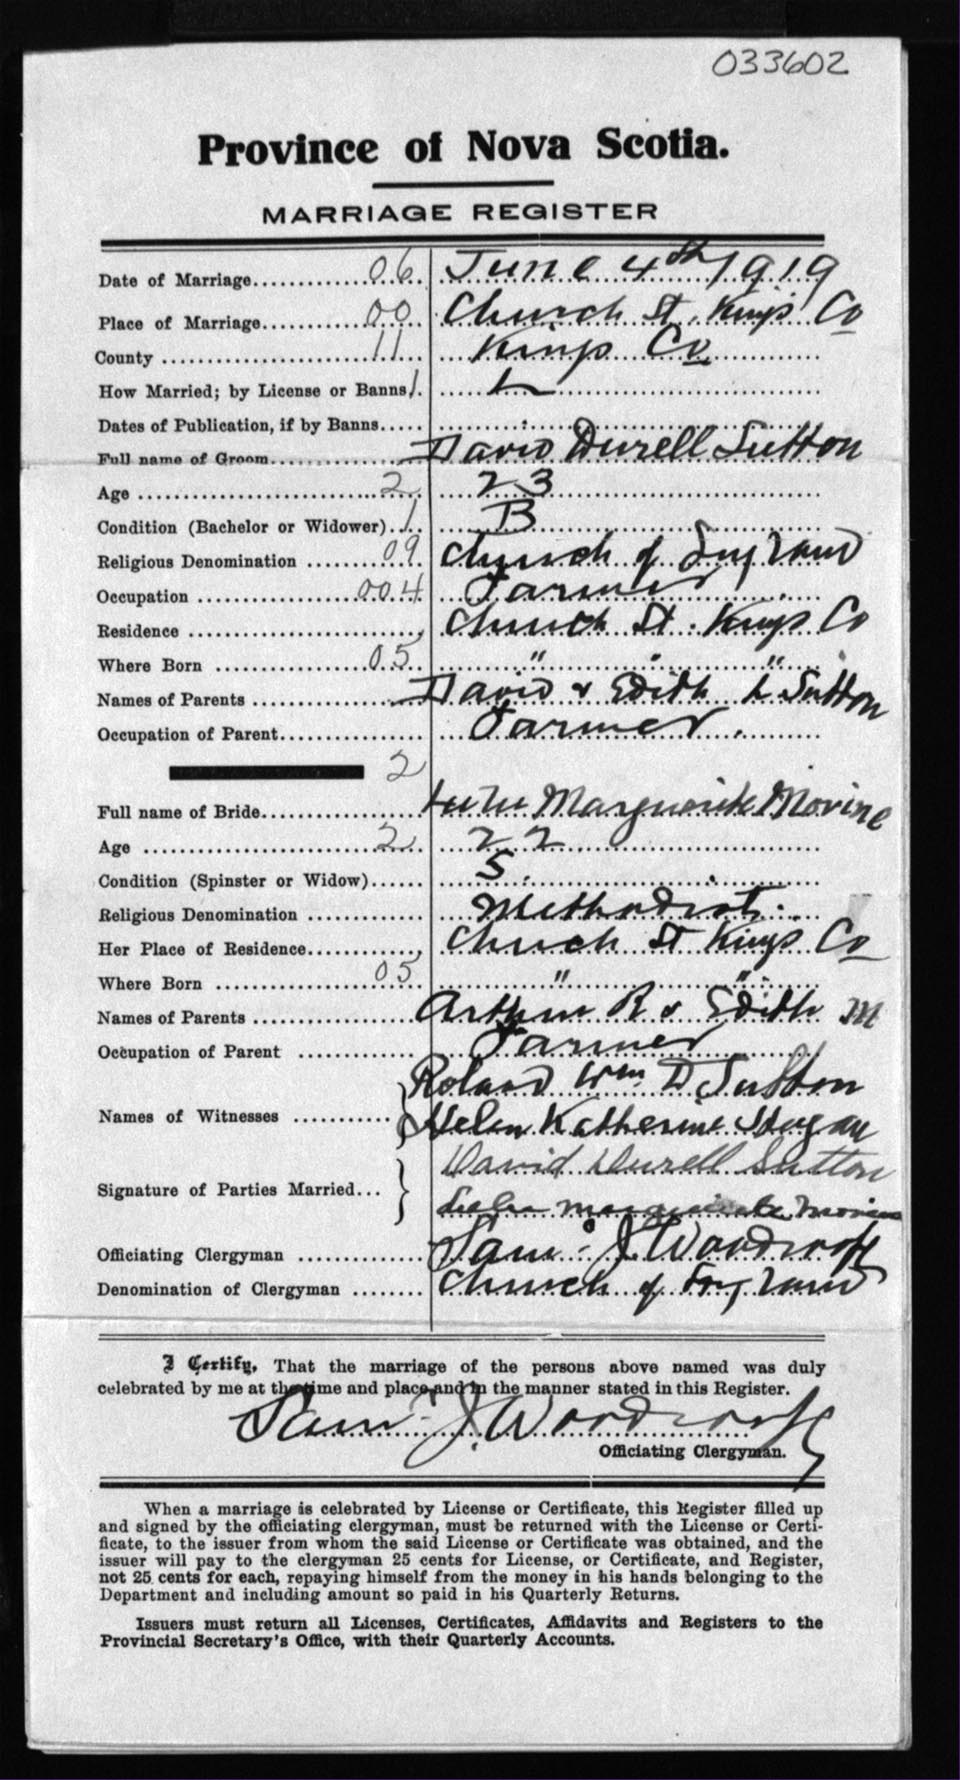 033602
Province of Nova Scotia.
MARRIAGE REGISTER
Date of Marriage 06 June 4th 1919
Place of Marriage 00 Church St. Kings Co
County 11 Kings Co
How Married; by License or Banns 1 L
Dates of Publication, if by Banns
Full name of Groom David Durell Sutton
Age 2 23
Condition (Bachelor or Widower) 1 B
Religious Denomination 09 Church of England
Occupation 004 Farmer
Residence Church St. Kings Co
Where Born 05 " " "
Names of Parents David & Edith L Sutton
Occupation of Parent Farmer
2
Full name of Bride Marguerite Morine
Age 2 22
Condition (Spinster or Widow) S.
Religious Denomination Methodist.
Her Place of Residence Church St Kings Co
Where Born 05 " "
Names of Parents Arthur R & Edith M
Occupation of Parent Farmer
Names of Witnesses Roland Wm D Sutton
Helen Katherine
Signature of Parties Married... David Durell Sutton
Marguerite Morine
Officiating Clergyman Saml J. Woodroofe
Denomination of Clergyman Church of England
I Certify, That the marriage of the persons above named was duly
celebrated by me at the time and place and in the manner stated in this Register.
Saml J. Woodroofe
Officiating Clergyman.
When a marriage is celebrated by License or Certificate, this Register filled up
and signed by the officiating clergyman, must be returned with the License or Certi-
ficate, to the issuer from whom the said License or Certificate was obtained, and the
issuer will pay to the clergyman 25 cents for License, or Certificate, and Register,
not 25 cents for each, repaying himself from the money in his hands belonging to the
Department and including amount so paid in his Quarterly Returns.
Issuers must return all Licenses, Certificates, Affidavits and Registers to the
Provincial Secretary's Office, with their Quarterly Accounts.